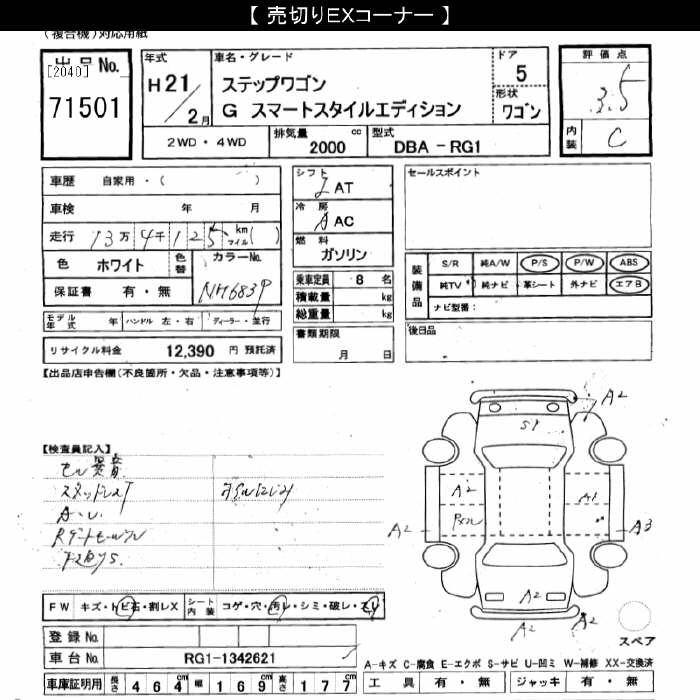 【 売切りEXコーナー 】
(複合機)対応用紙
出品No.
[2040]
71501
年式
H 21/2月
車名・グレード
ステップワゴン
G スマートスタイルエディション
ドア
5
形状
ワゴン
評価点
3.5
内装
C
2WD・4WD
排気量 2000 cc
型式 DBA - RG1
車歴 自家用・( )
車検 年 月
走行 13万 4千 1 2 5 km マイル( )
色 ホワイト 色替
カラーNo.
NH683P
保証書 有・無
モデル年式 年 ハンドル 左・右 ディーラー・並行
リサイクル料金 12,390 円 預託済
シフト
I AT
冷房
A AC
燃料
ガソリン
乗車定員 8 名
積載量 kg
総重量 kg
書類期限
月 日
セールスポイント
装備品
S/R 純A/W P/S P/W ABS
純TV 純ナビ 革シート 外ナビ エアB
ナビ型番:
後日品
【出品店申告欄(不良箇所・欠品・注意事項等)】
【検査員記入】
セル異音
A2
S1
A2
A1
A2
A3
A2
A2
FW キズ・トビ石・割レX
シート内装 コゲ・穴・汚レ・シミ・破レ・スレ
登録No.
車台No. RG1-1342621
車庫証明用 長さ 464cm 幅 169cm 高さ 177cm
スペア
A-キズ C-腐食 E-エクボ S-サビ U-凹ミ W-補修 XX-交換済
工具 有・無 ジャッキ 有・無